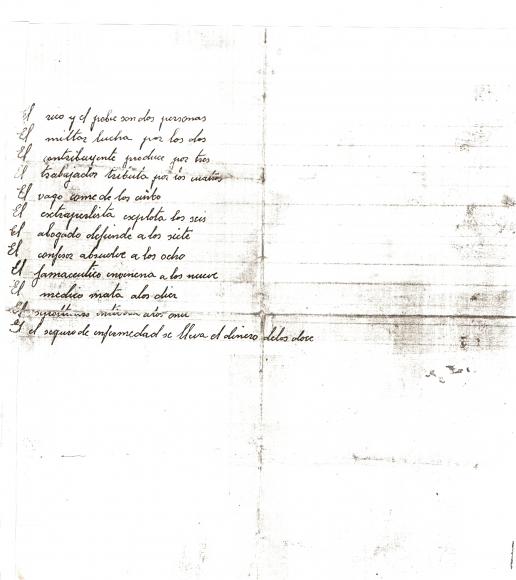 El rico y el pobre son dos personas
El militar lucha por los dos
El contribuyente produce por tres
El trabajador tributa por los cuatros
El vago come de los cinco
El extraperlista explota los seis
El abogado defiende a los siete
El confesor absuelve a los ocho
El farmaceutico envenena a los nueve
El medico mata alos diez
El alos onse
El el seguro de enfermedad se lleva el dinero delos doce